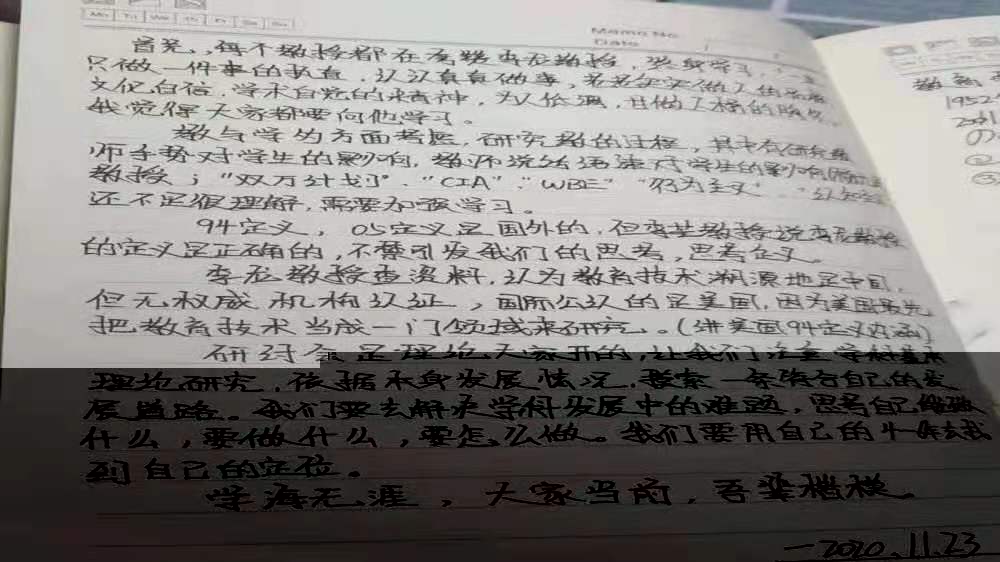 Mo Tu We Th Fr Sa Su
Memo No.
Date
首先,每个教授都在李龙教授,学习,
只做一件事的执着,认认真真做事,老老实实做人的
文化自信,学术自觉的精神,为人低调,且做人格的
我觉得大家都要向他学习。
教与学的方面考虑,研究教的过程,其中有研究教
师手势对学生的影响,教师说话语速对学生的影响
教授;“双万计划”、“CIA”、“WBE”“行为主义”
还不足很理解,需要加强学习。
94定义,05定义是国外的,但李龙教授说
的定义是正确的,不禁引发我们的思考,思考定义。
李龙教授查资料,认为教育技术溯源地是中国,
但无权威机构认证,国际公认的是美国,因为美国最先
把教育技术当成一门领域来研究。(讲美国94定义内涵)
研讨会是理论大家开的,让我们注重学科基本
理论研究,依据本身发展情况,探索一条符合自己的发
展道路。我们要去解决学科发展中的难题,思考自己能做
什么,要做什么,要怎么做。我们要用自己的
到自己的定位。
学海无涯,大家当前,吾辈楷模。
—2020.11.23
1952